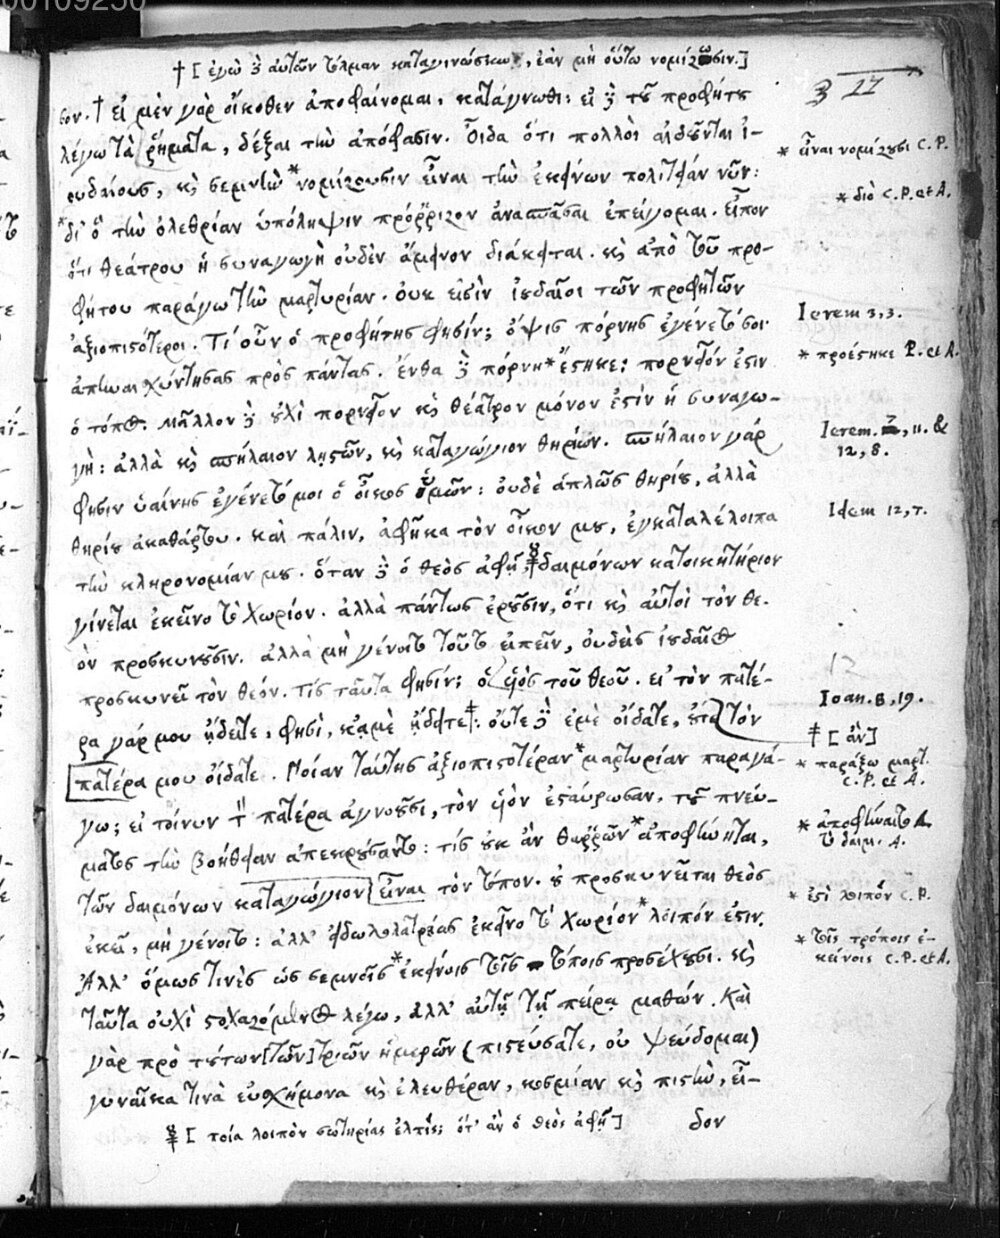 00109250
† [ ἐγὼ δὲ αὐτῶν τόλμαν καταγινώσκω, ἐὰν μὴ οὕτω νομίζωσιν.]
3 17
σον. † εἰ μὲν γὰρ οἴκοθεν ἀποφαίνομαι, κατάγνωθι: εἰ δὲ τοῦ προφήτου
λέγω τὰ ῥήματα, δέξαι τὴν ἀπόφασιν. Οἶδα ὅτι πολλοὶ αἰδοῦνται ἰ-
ουδαίους, καὶ σεμνὴν *νομίζουσιν εἶναι τὴν ἐκείνων πολιτείαν νῦν:
* εἶναι νομίζουσι C.P.
*δι' ὃ τὴν ὀλεθρίαν ὑπόληψιν πρόρριζον ἀνασπάσαι ἐπείγομαι. εἶπον
* διὸ C.P. et A.
ὅτι θεάτρου ἡ συναγωγὴ οὐδὲν ἄμεινον διάκειται. καὶ ἀπὸ τοῦ προ-
φήτου παράγω τὴν μαρτυρίαν. οὐκ εἰσὶν ἰουδαῖοι τῶν προφητῶν
ἀξιοπιστότεροι. Τί οὖν ὁ προφήτης φησίν; ὄψις πόρνης ἐγένετό σοι
Ierem 3,3.
ἀπηναισχύντησας πρὸς πάντας. ἔνθα δὲ πόρνη *ἕστηκε: πορνεῖόν ἐστιν
* προέστηκε P. et A.
ὁ τόπος. μᾶλλον δὲ οὐχὶ πορνεῖον καὶ θέατρον μόνον ἐστὶν ἡ συναγω-
γὴ: ἀλλὰ καὶ σπήλαιον λῃστῶν, καὶ καταγώγιον θηρίων. σπήλαιον γάρ
Ierem. 7, 11. &
12, 8.
φησιν ὑαίνης ἐγένετό μοι ὁ οἶκος ὑμῶν: οὐδὲ ἁπλῶς θηρίου, ἀλλὰ
θηρίου ἀκαθάρτου. καὶ πάλιν, ἀφῆκα τὸν οἶκον μου, ἐγκαταλέλοιπα
Idem 12, 7.
τὴν κληρονομίαν μου. ὅταν δὲ ὁ θεὸς ἀφῇ, δαιμόνων κατοικητήριον
γίνεται ἐκεῖνο τὸ χωρίον. ἀλλὰ πάντως ἐροῦσιν, ὅτι καὶ αὐτοὶ τὸν θε-
ὸν προσκυνοῦσιν. ἀλλὰ μὴ γένοιτο τοῦτο εἰπεῖν, οὐδεὶς ἰουδαῖος
προσκυνεῖ τὸν θεόν. Τίς ταῦτα φησίν; ὁ υἱὸς τοῦ θεοῦ. εἰ τὸν πατέ-
ρα γάρ μου ᾔδειτε, φησὶ, κἀμὲ ᾔδειτε ‡: οὔτε δὲ ἐμὲ οἴδατε, οὔτε τὸν
Ioan. 8, 19.
‡ [ ἂν]
πατέρα μου οἴδατε. Ποίαν ταύτης ἀξιοπιστοτέραν *μαρτυρίαν παραγά-
* παράξω μαρτ.
C.P. et A.
γω; εἰ τοίνυν τὸν πατέρα ἀγνοοῦσι, τὸν υἱὸν ἐσταύρωσαν, τοῦ πνεύ-
ματος τὴν βοήθειαν ἀπεκρούσαντο: τίς οὐκ ἂν θαρρῶν *ἀποφήνηται,
* ἀποφήναιτο A.
τὸ δαιμ. A.
τῶν δαιμόνων καταγώγιον εἶναι τὸν τόπον. οὐ προσκυνεῖται θεὸς
ἐκεῖ, μὴ γένοιτο: ἀλλ' εἰδωλολατρείας ἐκεῖνο τὸ χωρίον *λοιπόν ἐστιν.
* ἐστὶ λοιπόν C.P.
Ἀλλ' ὅμως τινὲς ὡς σεμνοῖς *ἐκείνοις τοῖς τόποις προσέχουσι. καὶ
* τοῖς τρόποις ἐ-
κείνοις C.P. et A.
ταῦτα οὐχὶ στοχαζόμενος λέγω, ἀλλ' αὐτῇ τῇ πείρᾳ μαθών. Καὶ
γὰρ πρὸ τούτων [τῶν] τριῶν ἡμερῶν (πιστεύσατε, οὐ ψεύδομαι)
γυναῖκα τινὰ εὐσχήμονα καὶ ἐλευθέραν, κοσμίαν καὶ πιστὴν, εἶ-
[ ποία λοιπὸν σωτηρίας ἐλπίς; ὅτ' ἂν ὁ θεὸς ἀφῇ]
δον